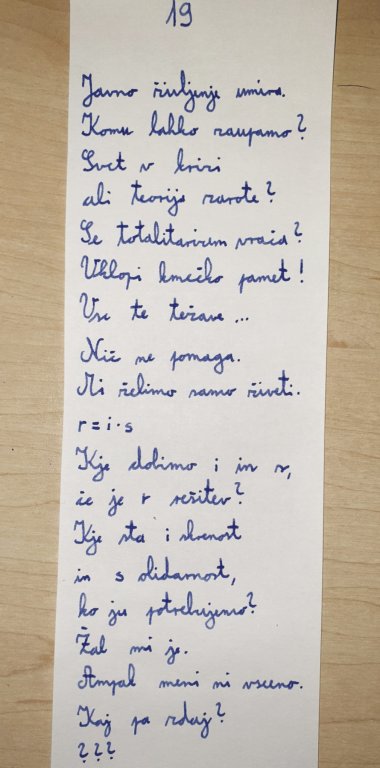 19
Javno življenje umira.
Komu lahko zaupamo?
Svet v krizi
ali teorija zarote?
Se totalitarizem vrača?
Vklopi kmečko pamet!
Vse te težave ...
Nič ne pomaga.
Mi želimo samo živeti.
r = i · s
Kje dobimo i in s,
če je r rešitev?
Kje sta i skrenost
in s olidarnost,
ko ju potrebujemo?
Žal mi je.
Ampak meni ni vseeno.
Kaj pa zdaj?
???